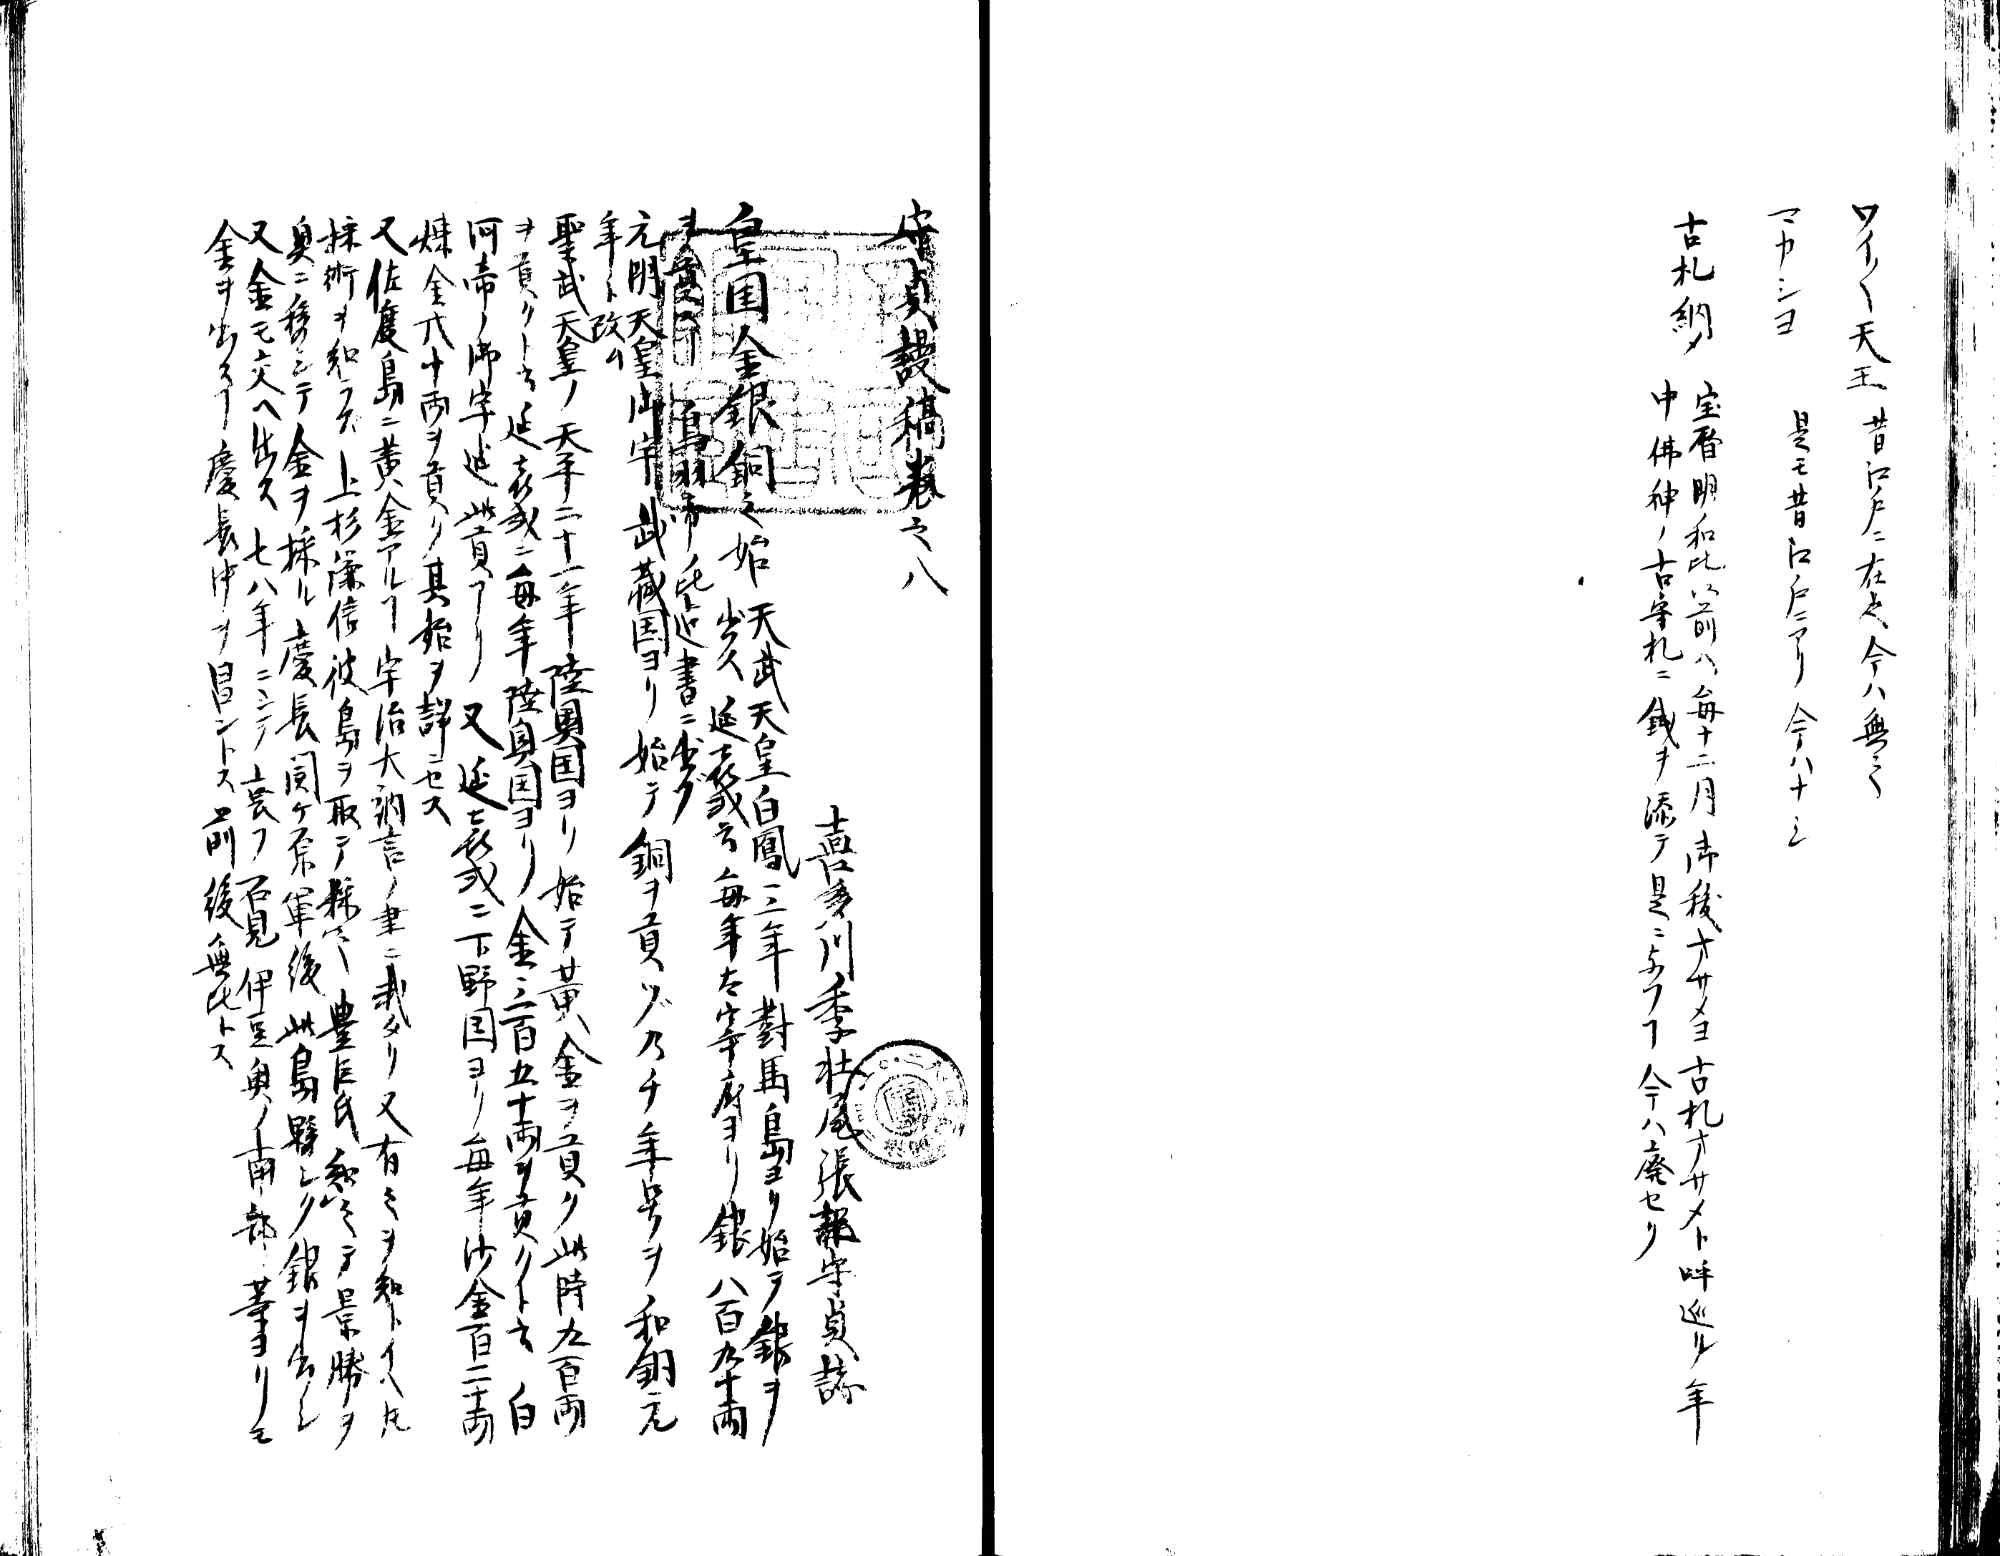 ワイ〳〵天王 昔江戸ニ在之今ハ無之
マカシヨ 是モ昔江戸ニアリ 今ハナシ
古札納メ 宝暦明和比以前ハ毎十二月御秡オサメヨ古札オサメト呼巡ル年
中佛神ノ古守札ニ銭ヲ添テ是ニ与フヿ今ハ廃セリ
守貞謾稿巻之八
喜多川季壮尾張部守貞誌
皇国金銀銅之始 天武天皇白鳳三年對馬島ヨリ始テ銀ヲ
出ス 延喜式云毎年太宰府ヨリ銀八百九十両
ヲ貢スヿ 鳥羽帝ノ比迄書ニ出ヅ
元明天皇御宇武蔵国ヨリ始テ銅ヲ貢ヅ乃チ年号ヲ和銅元
年ト改ム
聖武天皇ノ天平二十一年陸奥国ヨリ始テ黄金ヲ貢ク此時九百両
ヲ貢クト云 延喜式ニ毎年陸奥国ヨリ金三百五十両ヲ貢クト云 白
河帝ノ御宇迄此貢アリ 又延喜式ニ下野国ヨリ毎年沙金百二十両
煉金八十両ヲ貢ク其始ヲ詳ニセス
又佐度島ニ黄金アルヿ宇治大納言ノ書ニ載タリ又有ヿヲ知トイヘ𪜈
採術ヲ知ラズ 上杉謙信彼島ヲ取テ
奥ニ移シテ金ヲ採ル慶長関ケ原軍後此島縣シク銀ヲ出シ
又金モ交ヘ出ス 七八年ニシテ衰フ 石見伊豆奥ノ南部等ヨリモ
金ヲ出スヿ慶長中ヲ昌ントス前後無比トス